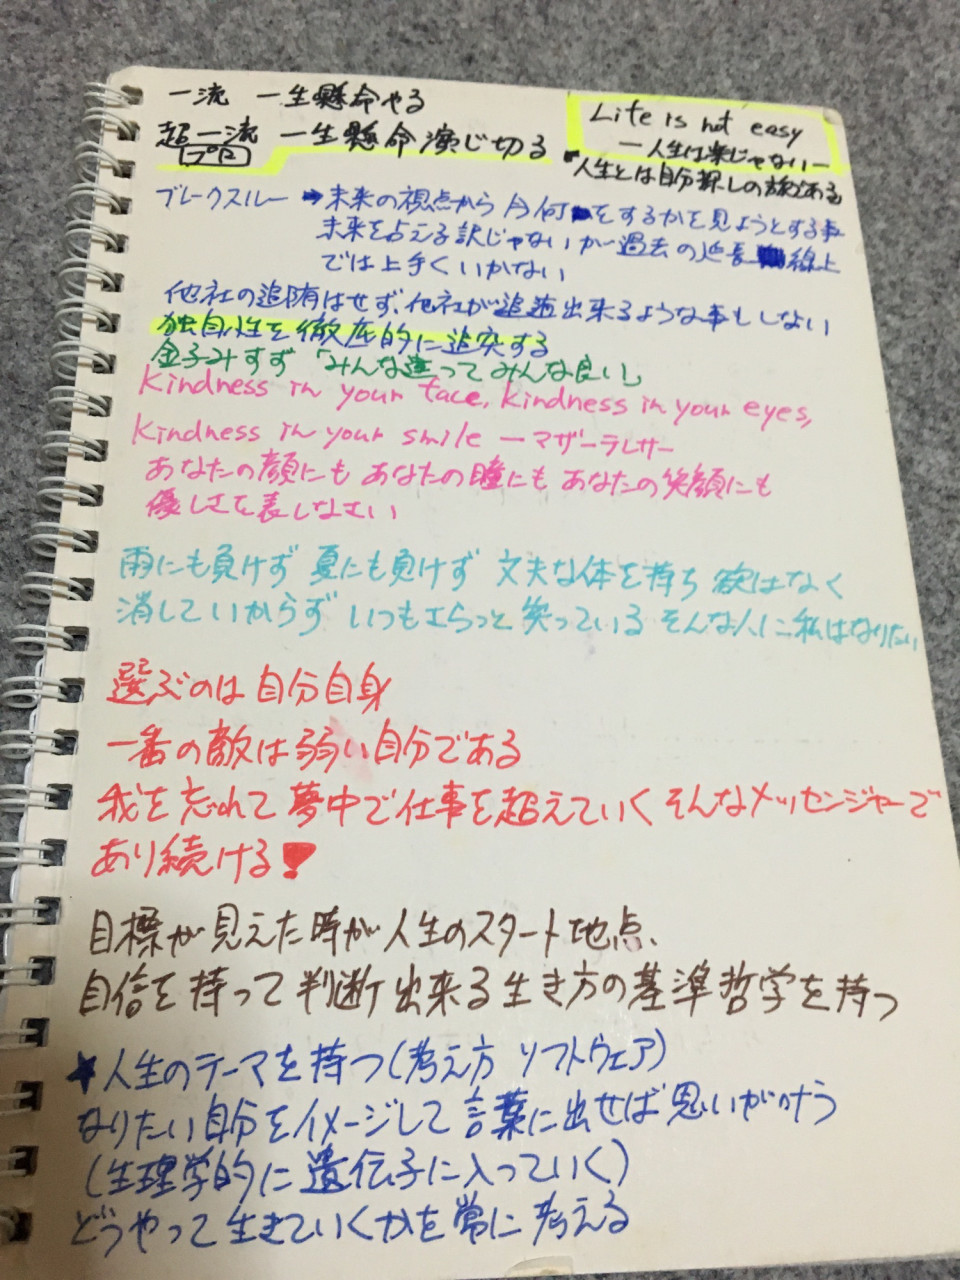 一流 一生懸命やる
超一流 一生懸命演じ切る
プロ
Life is not easy
ー人生は楽じゃないー
人生とは自分探しの旅である
ブレークスルー → 未来の視点から今何をするかを見ようとする事
未来を占える訳じゃないが過去の延長線上
では上手くいかない
他社の追随はせず、他社が追随出来るような事もしない
独自性を徹底的に追突する
金子みすず「みんな違ってみんな良い」
kindness in your face, kindness in your eyes,
kindness in your smile ーマザーテレサー
あなたの顔にも あなたの瞳にも あなたの笑顔にも
優しさを表しなさい
雨にも負けず 夏にも負けず 丈夫な体を持ち 欲はなく
消していからず いつもにらっと笑っている そんな人に私はなりたい
選ぶのは自分自身
一番の敵は弱い自分である
我を忘れて夢中で仕事を超えていく そんなメッセンジャーで
あり続ける!
目標が見えた時が人生のスタート地点、
自信を持って判断出来る生き方の基準哲学を持つ
★人生のテーマを持つ(考え方 ソフトウェア)
なりたい自分をイメージして言葉に出せば思いがけう
(生理学的に遺伝子に入っていく)
どうやって生きていくかを常に考える